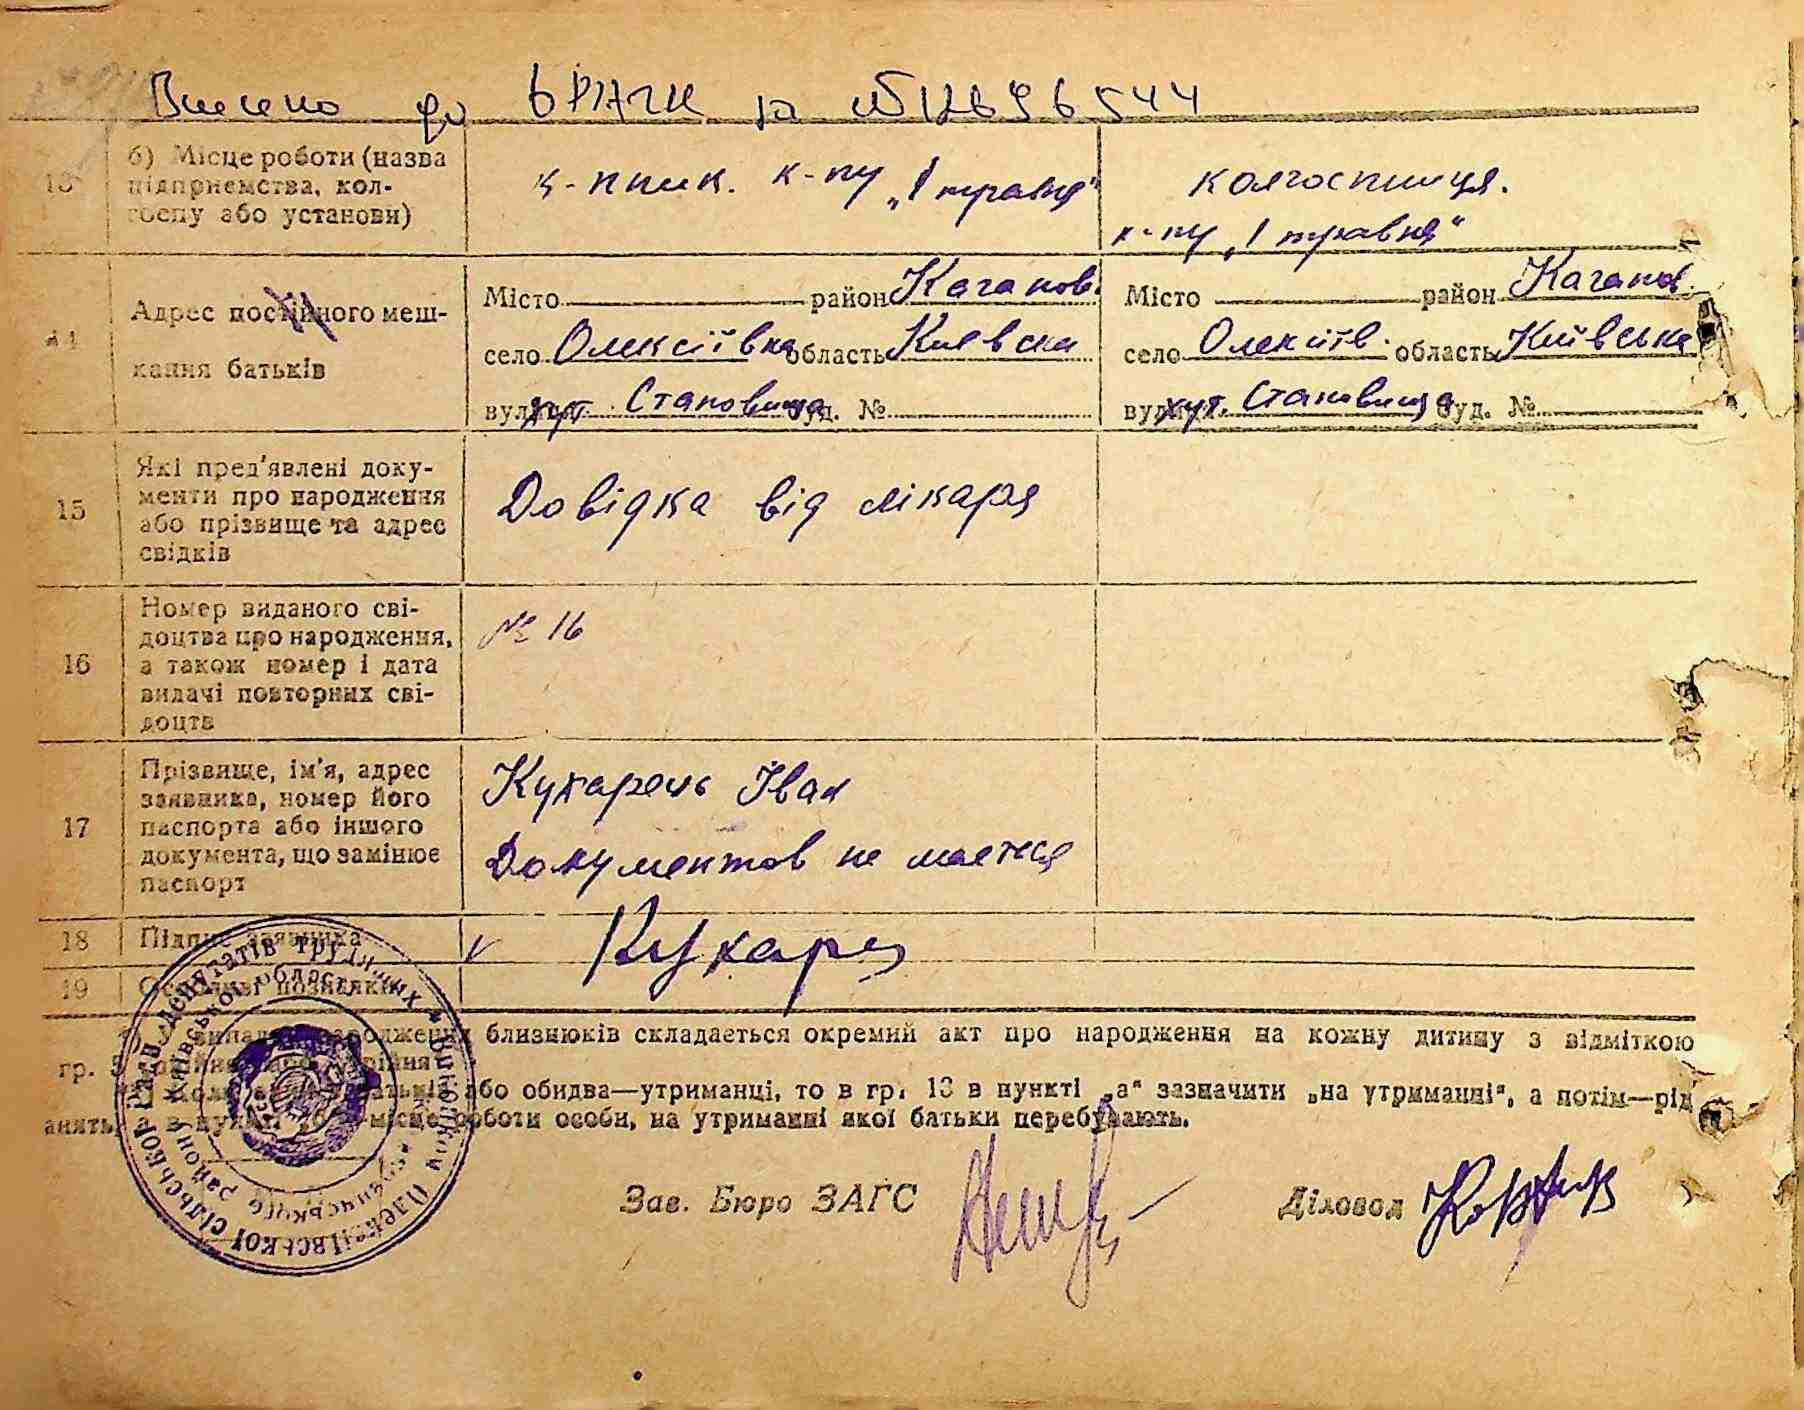 Внесено до ДРАЦС за №12696544
13
б) Місце роботи (назва
підприємства, кол-
госпу або установи)
к-пник. к-пу „1 травня“
колгоспниця.
к-пу „1 травня“
14
Адрес постійного меш-
кання батьків
Місто район Каганов.
село Олексіївка область Киевска
вулиця хут. Становища буд. №
Місто район Каганов.
село Олексіїв. область Київська
вулиця хут. Становища буд. №
15
Які пред'явлені доку-
менти про народження
або прізвище та адрес
свідків
Довідка від лікаря
16
Номер виданого сві-
доцтва про народження,
а також номер і дата
видачі повторних сві-
доцтв
№ 16
17
Прізвище, ім'я, адрес
заявника, номер його
паспорта або іншого
документа, що замінює
паспорт
Кухарець Іван
Документов не мается
18 Підпис заявника
v Кухарец
19
близнюків складається окремий акт про народження на кожну дитину з відміткою
гр. 5
або обидва—утриманці, то в гр. 13 в пункті „а“ зазначити „на утриманні“, а потім—рід
місце роботи особи, на утриманні якої батьки перебувають.
Зав. Бюро ЗАГС
Діловод
Виконком Олексіївської сільської Ради депутатів трудящих
району Київської області